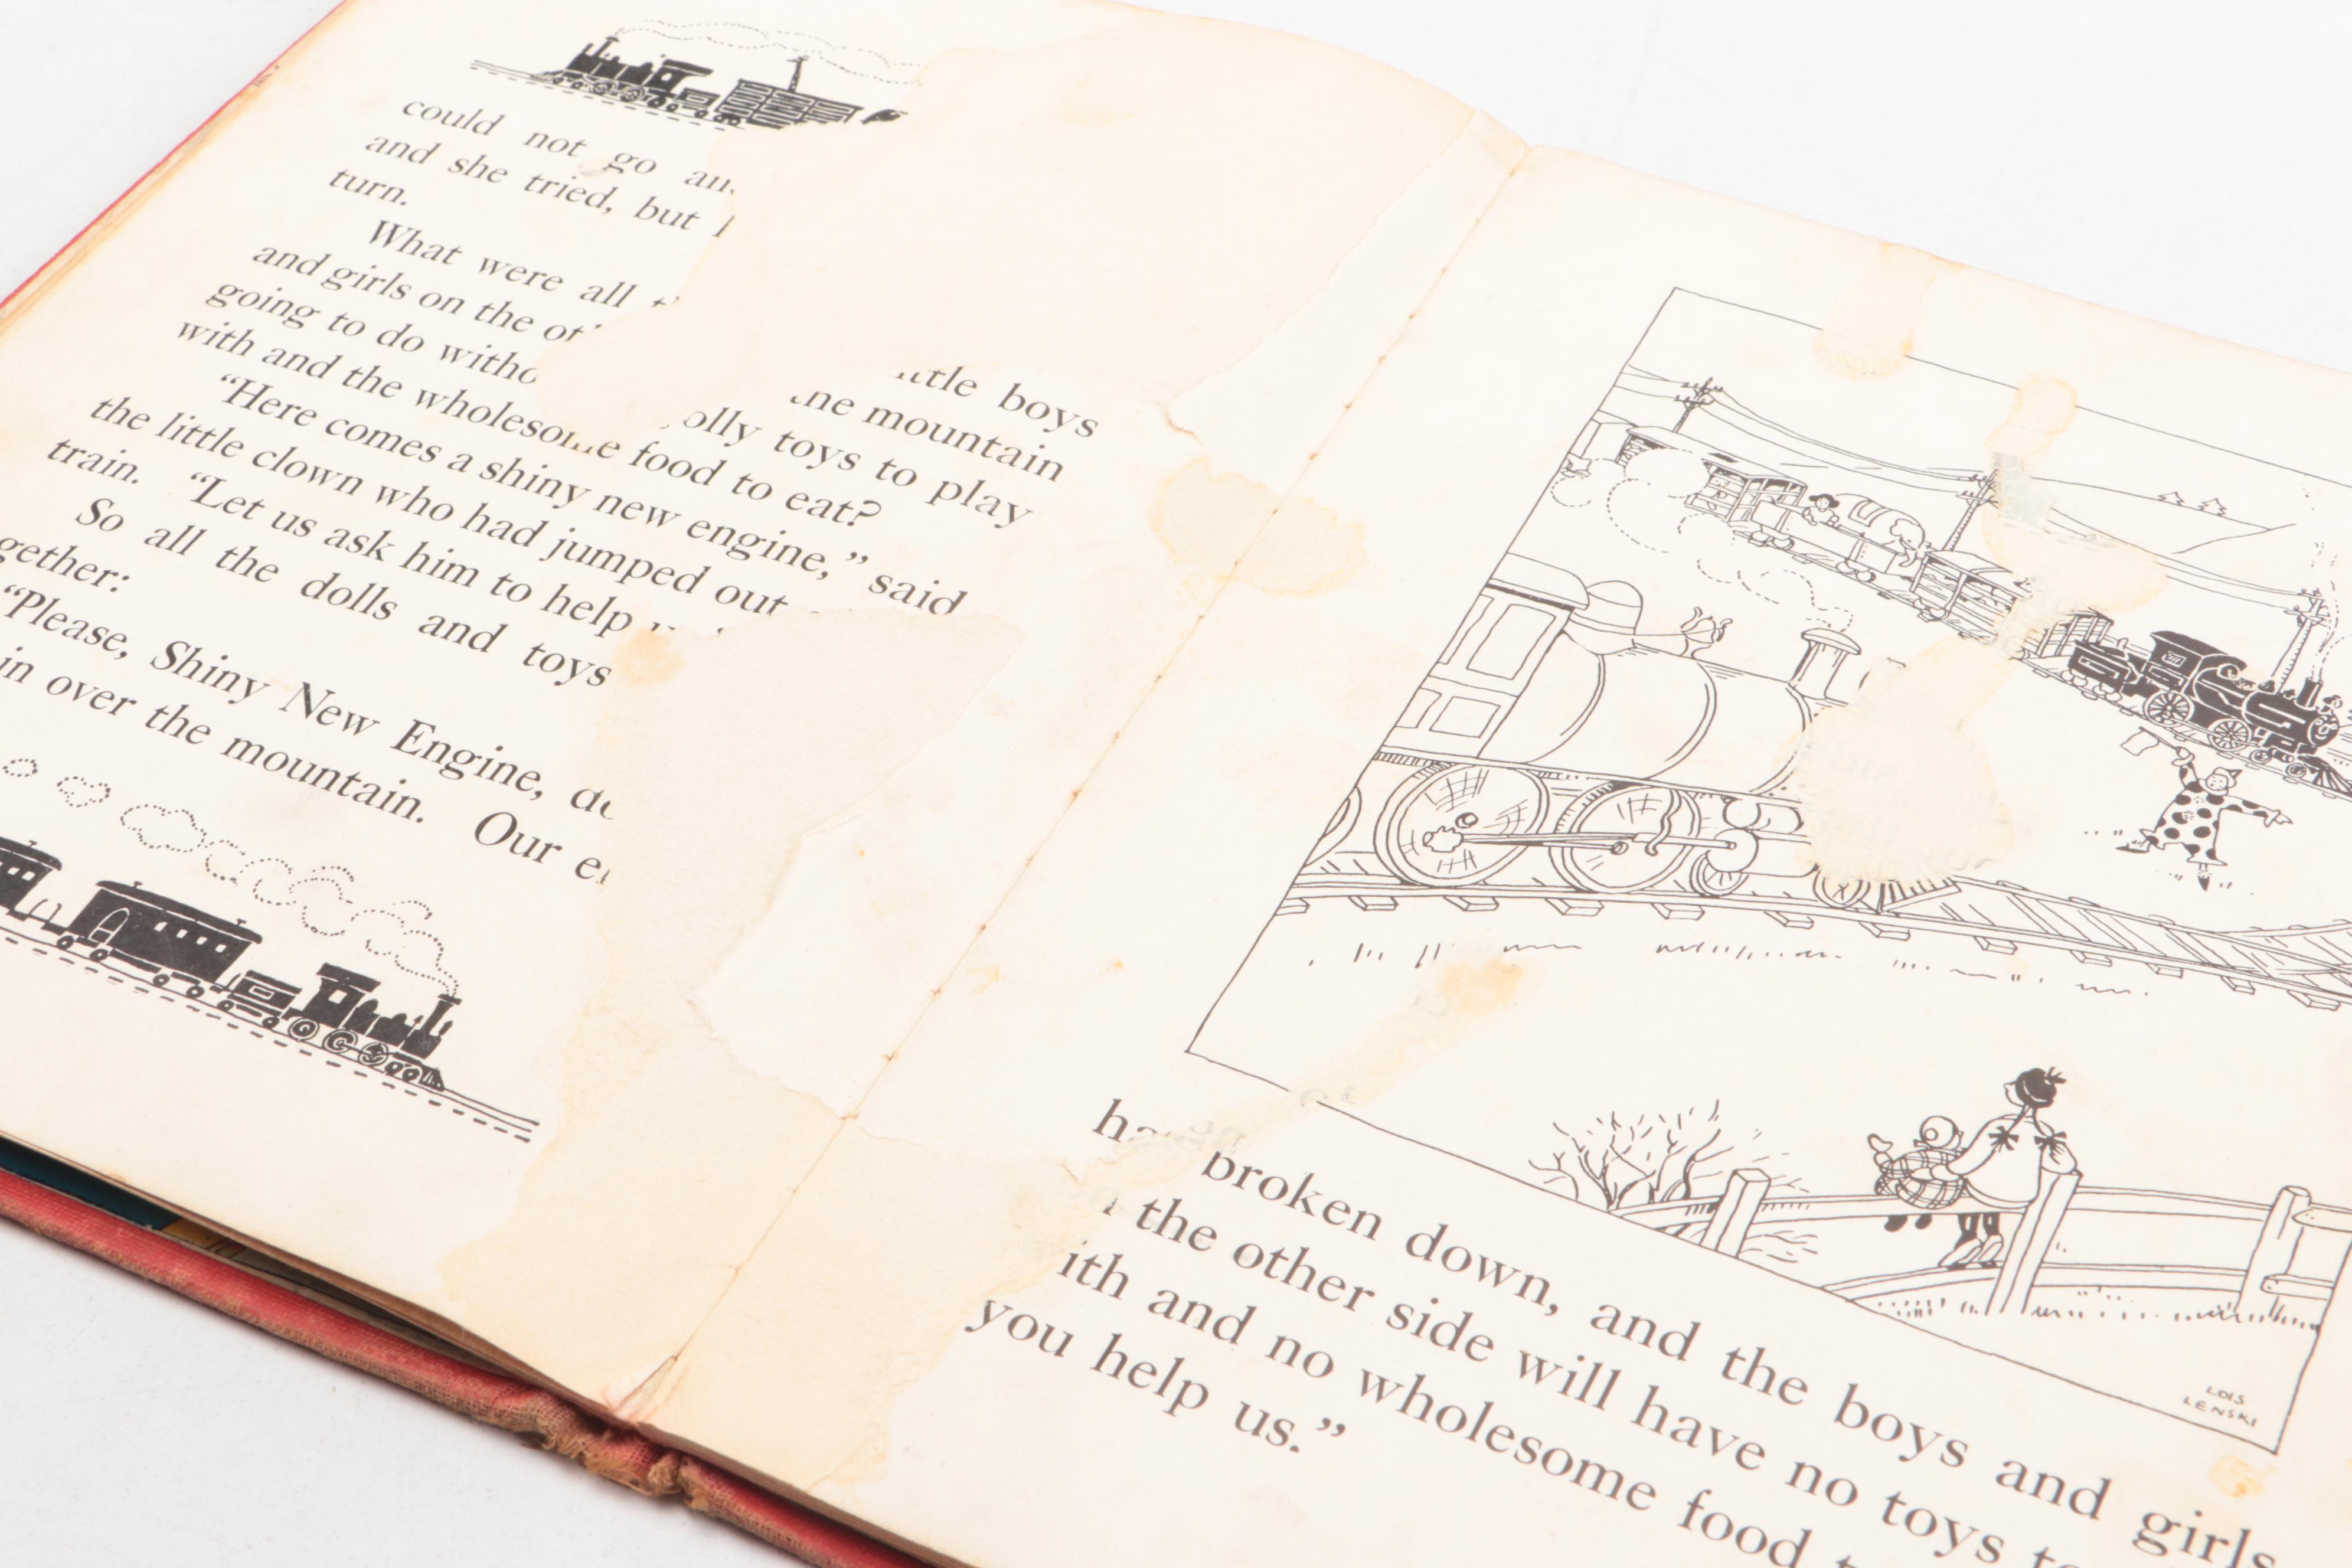 could not go
and she tried, but
turn.
What were all boys
and girls on the mountain
going to do toys to play
with and the wholesome food to eat?
“Here comes a shiny new engine,” said
the little clown who had jumped out
train. “Let us ask him to help
So all the dolls and toys
gether:
“Please, Shiny New Engine,
in over the mountain. Our
LOIS
LENSKI
broken down, and the boys and girls
the other side will have no toys
ith and no wholesome food
you help us.”